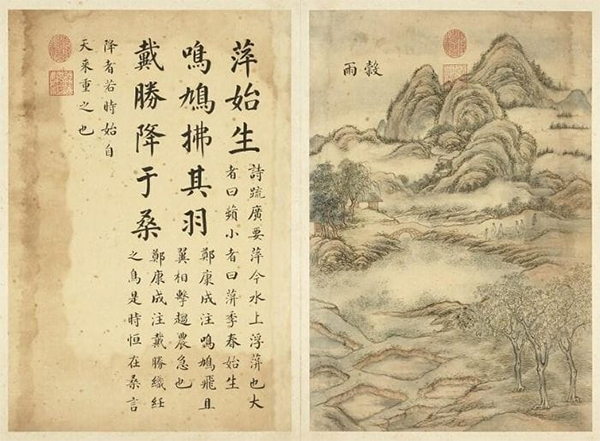 穀雨
萍始生
詩疏廣要萍今水上浮蓱也大
者曰蘋小者曰蓱季春始生
鳴鳩拂其羽
鄭康成注鳴鳩飛且
翼相擊趨農急也
戴勝降于桑
鄭康成注戴勝織紝
之鳥是時恒在桑言
降者若時始自
天來重之也